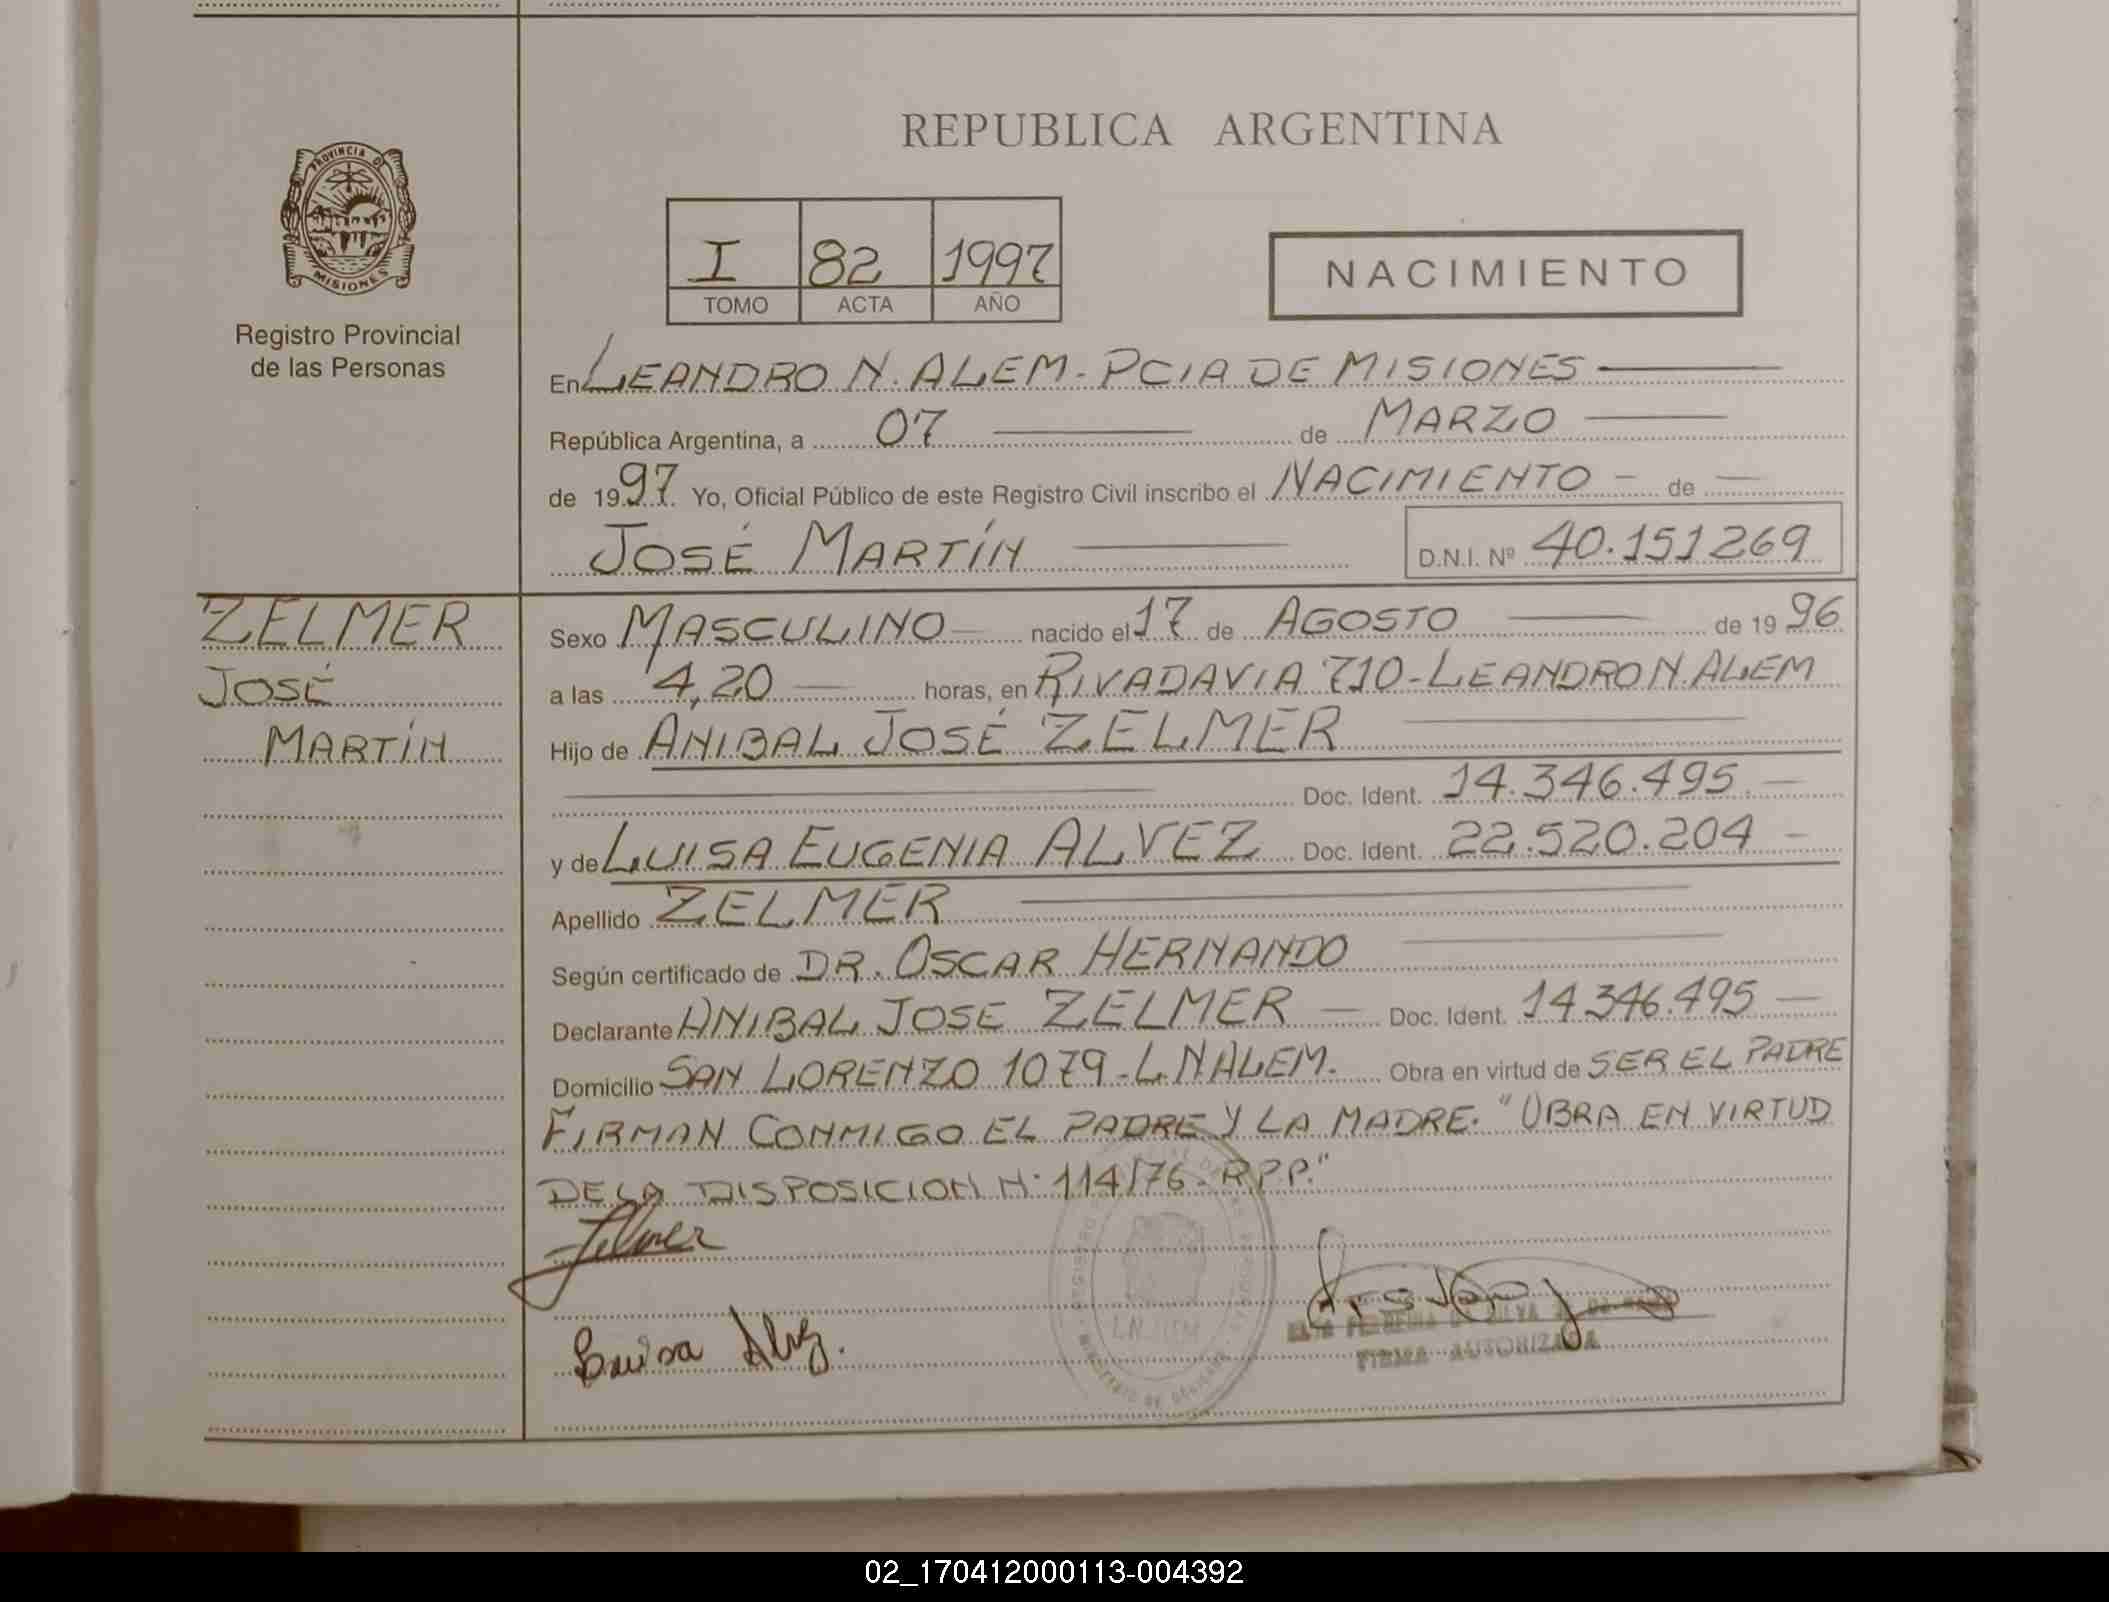 REPUBLICA ARGENTINA
PROVINCIA DE
MISIONES
Registro Provincial
de las Personas
I 82 1997
TOMO ACTA AÑO
NACIMIENTO
En LEANDRO N. ALEM - PCIA DE MISIONES
República Argentina, a 07 de MARZO
de 1997. Yo, Oficial Público de este Registro Civil inscribo el NACIMIENTO - de -
JOSÉ MARTÍN D.N.I. Nº 40.151269
ZELMER
JOSÉ
MARTÍN
Sexo MASCULINO nacido el 17 de AGOSTO de 1996
a las 4,20 horas, en RIVADAVIA 710 - LEANDRO N. ALEM
Hijo de ANIBAL JOSÉ ZELMER
Doc. Ident. 14.346.495
y de LUISA EUGENIA ALVEZ Doc. Ident. 22.520.204
Apellido ZELMER
Según certificado de DR. OSCAR HERNANDO
Declarante ANIBAL JOSE ZELMER Doc. Ident. 14346.495
Domicilio SAN LORENZO 1079 - L N ALEM. Obra en virtud de SER EL PADRE
FIRMAN CONMIGO EL PADRE Y LA MADRE. "OBRA EN VIRTUD
DE LA DISPOSICION Nº 114/76 - R.P.P."
Zelmer
Luisa Alvez.
FIRMA AUTORIZADA
02_170412000113-004392